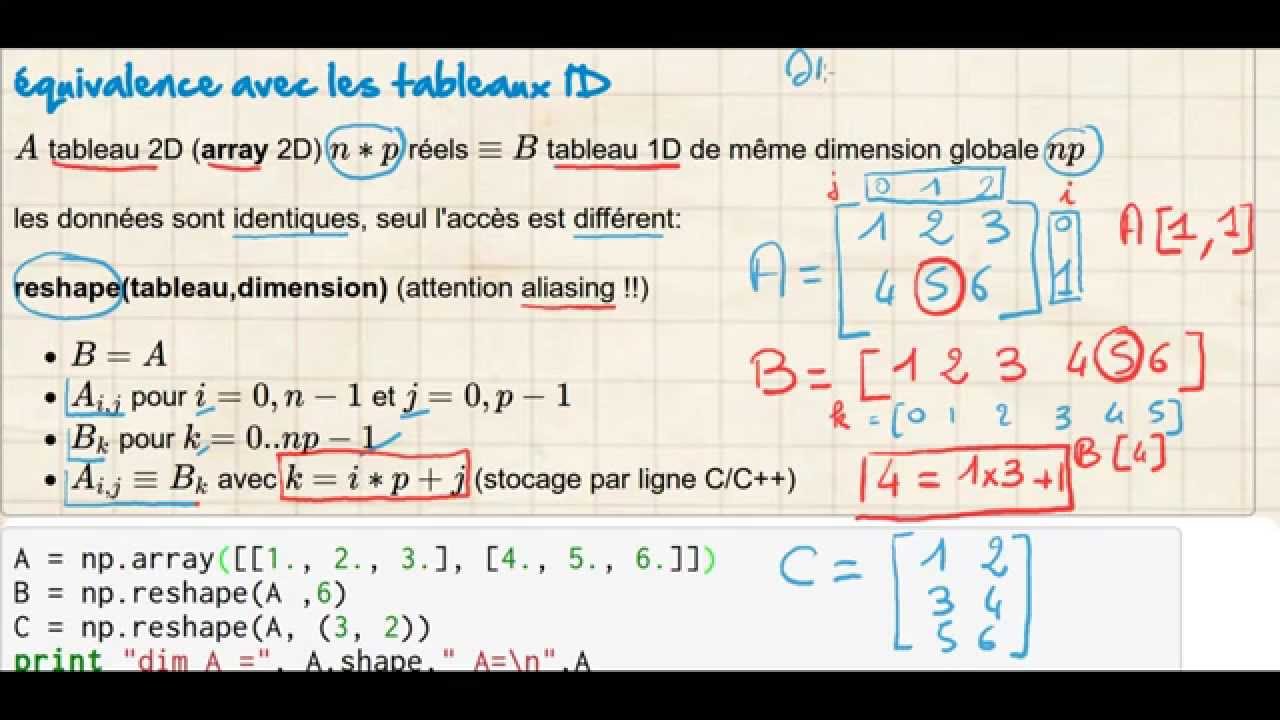 équivalence avec les tableaux 1D
A tableau 2D (array 2D) n ∗ p réels ≡ B tableau 1D de même dimension globale np
les données sont identiques, seul l'accès est différent:
reshape(tableau,dimension) (attention aliasing !!)
• B = A
• A_{i,j} pour i = 0, n − 1 et j = 0, p − 1
• B_k pour k = 0..np − 1
• A_{i,j} ≡ B_k avec k = i ∗ p + j (stocage par ligne C/C++)
j 0 1 2 i
A = [ 1 2 3 ] 0
[ 4 5 6 ] 1
A [1, 1]
B = [ 1 2 3 4 5 6 ]
k = [ 0 1 2 3 4 5 ]
4 = 1x3 +1
B [4]
C = [ 1 2
3 4
5 6 ]
A = np.array([[1., 2., 3.], [4., 5., 6.]])
B = np.reshape(A ,6)
C = np.reshape(A, (3, 2))
print "dim A =", A.shape," A=\n",A